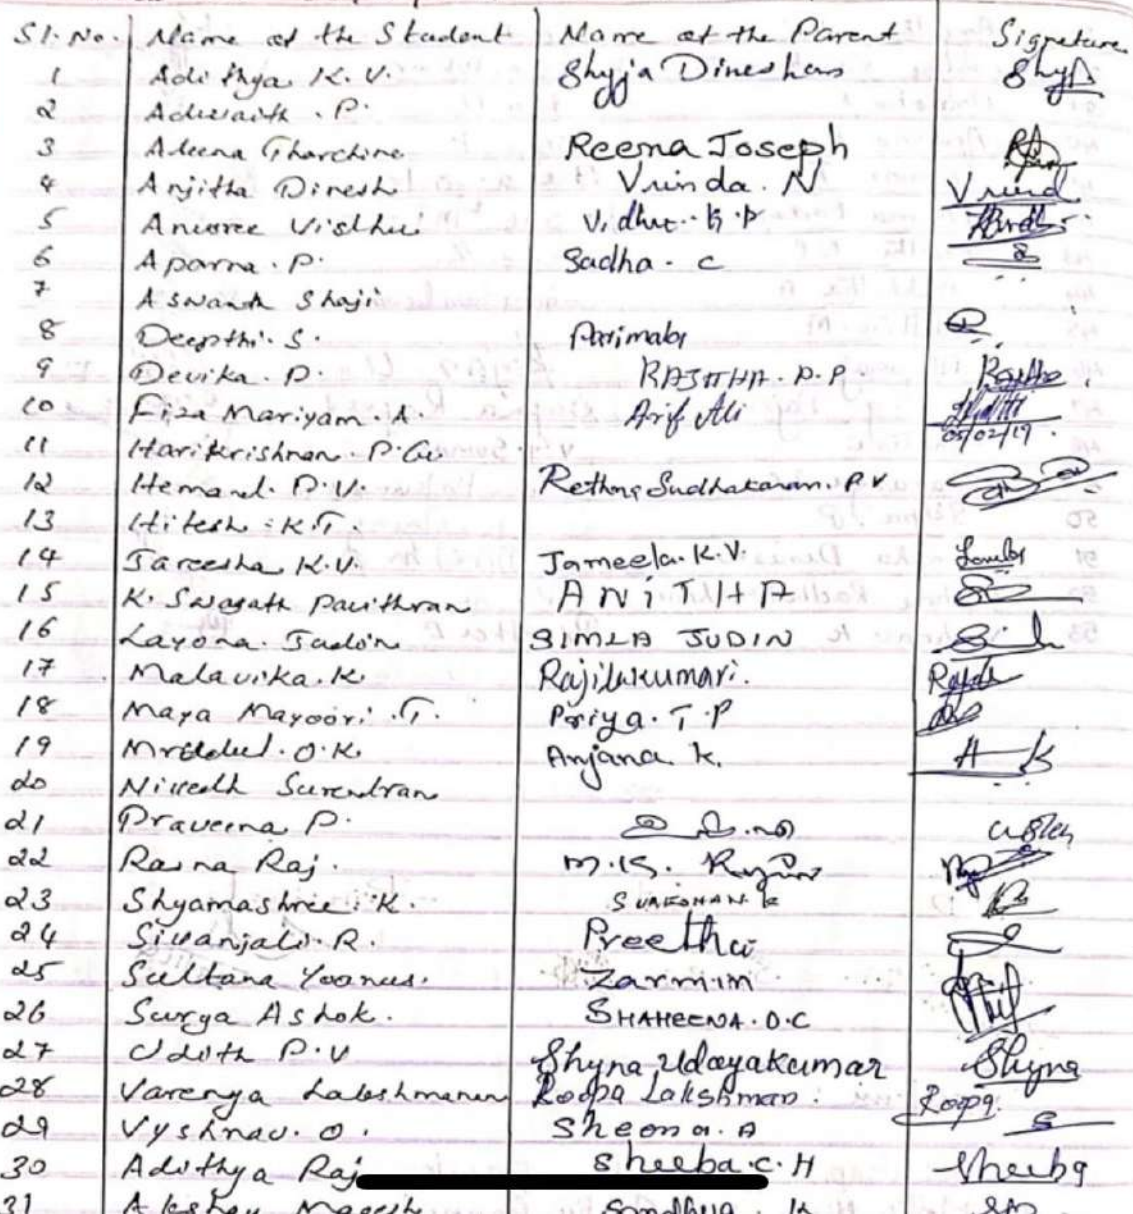 Sl. No. Name of the Student Name of the Parent Signature
1 Adithya K. V. Shyja Dineshan Shyja
2 Adwaith . P.
3 Aleena Tharchine Reena Joseph
4 Anjitha Dinesh Vrinda . N Vrind
5 Ansree Vidhu Vidhu . K . P
6 Aparna . P. Sadha . C
7 Aswanth Shaji
8 Deepthi . S. Parimala
9 Devika . P. RAJITHA . P. P
10 Fiza Mariyam . A Arif Ali 05/02/19
11 Harikrishnan . P.
12 Hemand . P. V. Rethna Sudhakaran . P V
13 Hitesh . K T.
14 Jareesha K. V. Jameela . K. V.
15 K. Swagath Pavithran ANiTHA
16 Layona . Judin SIMLA JUDIN
17 Malavika . K. Rajilakumari .
18 Maya Mayoori . T. Priya . T . P
19 Mrddul . O. K. Anjana K. A K
20 Nivedh Surendran
21 Praveena P.
22 Rasna Raj . M. K.
23 Shyamashree . K.
24 Sivanjali . R. Preetha
25 Sultana Yoonus . Zarmin
26 Surya Ashok . SHAHEENA . O . C
27 Udith P. V Shyna Udayakumar Shyna
28 Varenya Lakshmanan Roopa Lakshman . Roopa .
29 Vyshnav . O . Sheena . A
30 Adithya Raj Sheeba . C . H Sheeba
31 Akshay